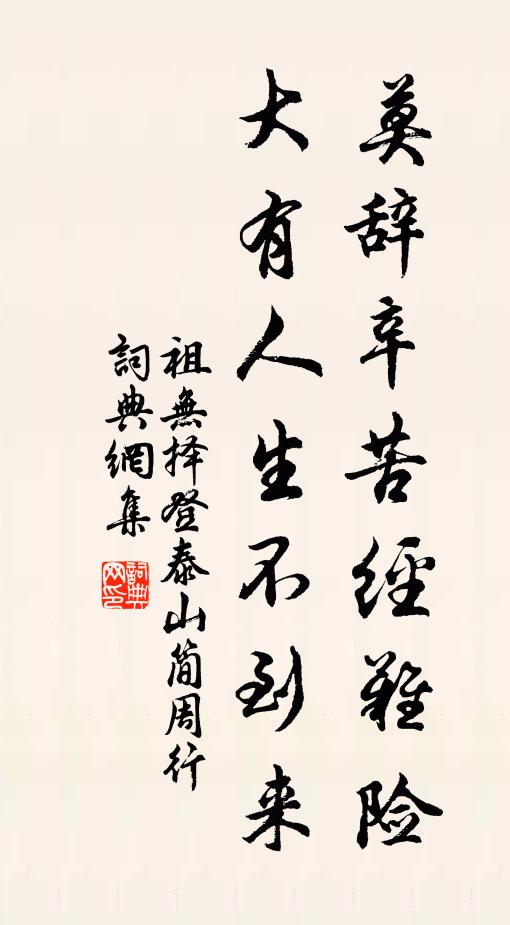 莫辞辛苦經難险
大有人生不到来
祖無择登泰山简周行
詞典網集
詞典网印